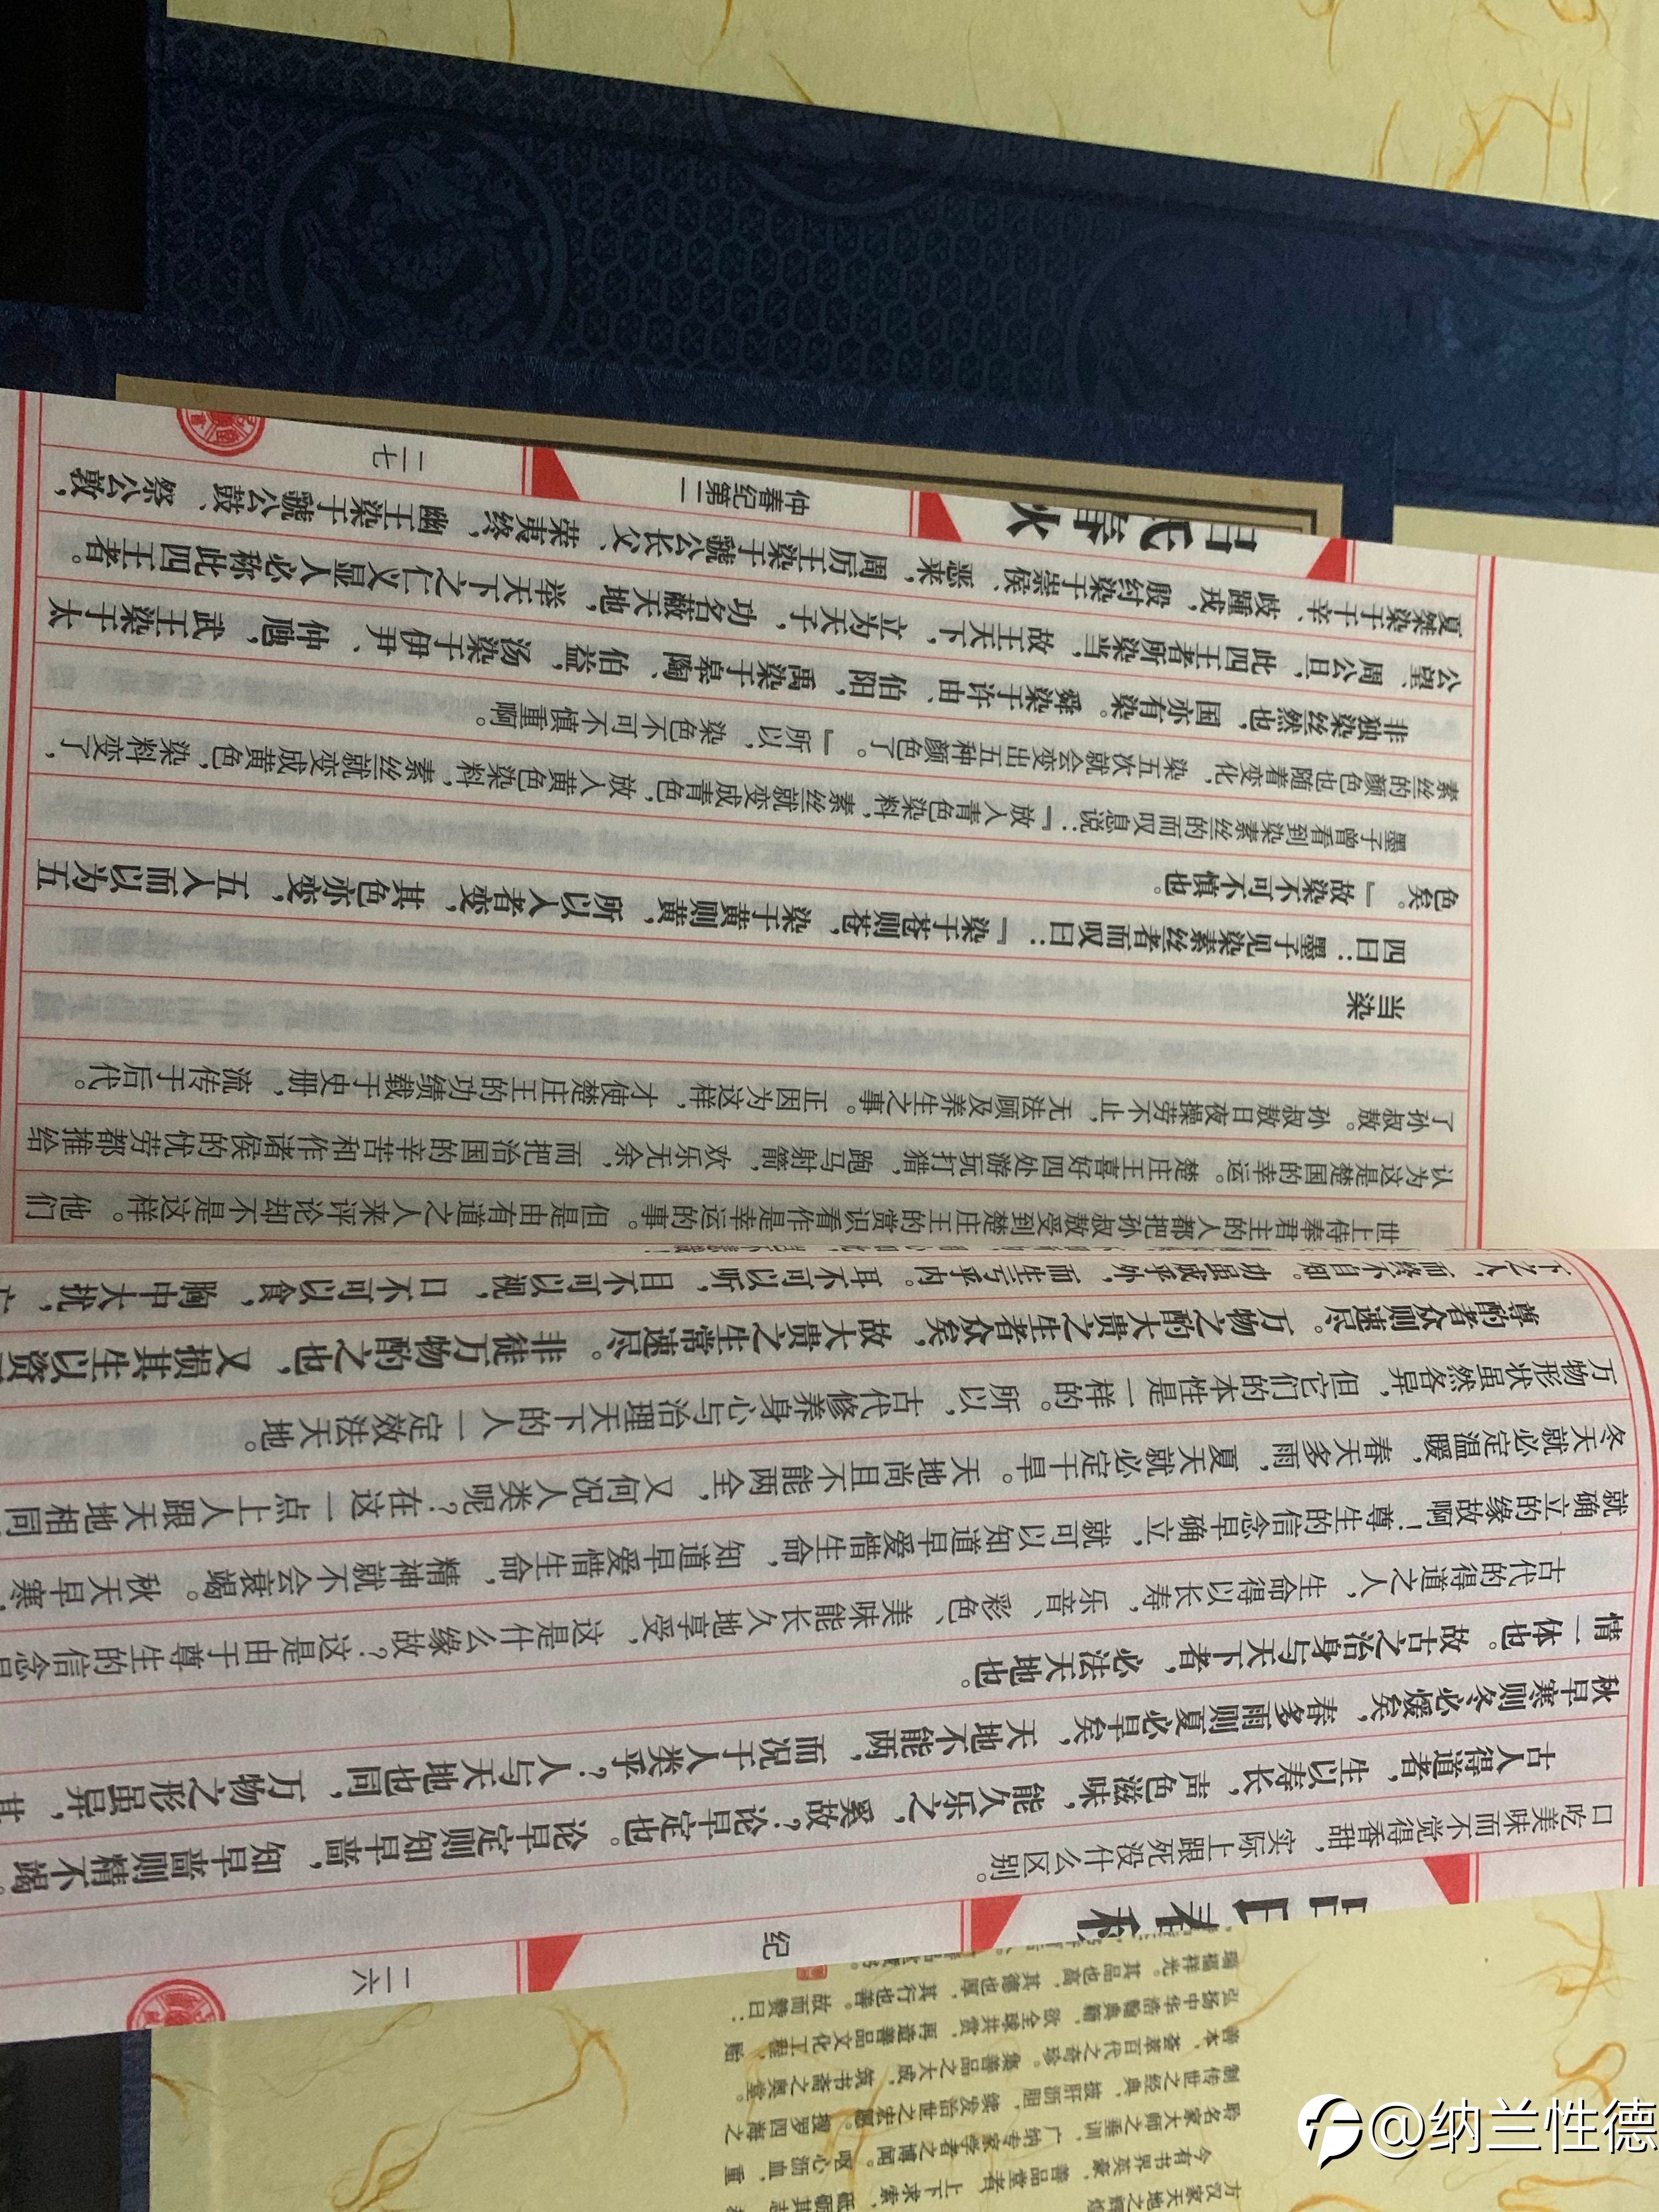 口吃美味而不觉得香甜，实际上跟死没什么区别。
古人得道者，生以寿长，声色滋味，能久乐之，奚故？论早定也。论早定则知早啬，知早啬则精不竭。
秋早寒则冬必煖矣，春多雨则夏必旱矣，天地不能两，而况于人类乎？人与天地也同，万物之形虽异，其
情一体也。故古之治身与天下者，必法天地也。
古代的得道之人，生命得以长寿，乐音、彩色、美味能长久地享受，这是什么缘故？这是由于尊生的信念早
就确立的缘故啊！尊生的信念早确立，就可以知道早爱惜生命，知道早爱惜生命，精神就不会衰竭。秋天早寒，
冬天就必定温暖，春天多雨，夏天就必定干旱。天地尚且不能两全，又何况人类呢？在这一点上人跟天地相同
万物形状虽然各异，但它们的本性是一样的。所以，古代修养身心与治理天下的人一定效法天地。
尊酌者众则速尽。万物之酌大贵之生者众矣，故大贵之生常速尽。非徒万物酌之也，又损其生以资
下之人，而终不自知。功虽成乎外，而生亏乎内。耳不可以听，目不可以视，口不可以食，胸中大扰，
纪
二六
世上侍奉君主的人都把孙叔敖受到楚庄王的赏识看作是幸运的事。但是由有道之人来评论却不是这样。他们
认为这是楚国的幸运。楚庄王喜好四处游玩打猎，跑马射箭，欢乐无余，而把治国的辛苦和作诸侯的忧劳都推给
了孙叔敖。孙叔敖日夜操劳不止，无法顾及养生之事。正因为这样，才使楚庄王的功绩载于史册，流传于后代。
当染
四曰：墨子见染素丝者而叹曰：『染于苍则苍，染于黄则黄，所以入者变，其色亦变，五入而以为五
色矣。』故染不可不慎也。
墨子曾看到染素丝的而叹息说：『放入青色染料，素丝就变成青色，放入黄色染料，素丝就变成黄色，染料变了，
素丝的颜色也随着变化，染五次就会变出五种颜色了。』所以，染色不可不慎重啊。
非独染丝然也，国亦有染。舜染于许由、伯阳，禹染于皋陶、伯益，汤染于伊尹、仲虺，武王染于太
公望、周公旦，此四王者所染当，故王天下，立为天子，功名蔽天地，举天下之仁义显人必称此四王者。
夏桀染于干辛、歧踵戎，殷纣染于崇侯、恶来，周厉王染于虢公长父、荣夷终，幽王染于虢公鼓、祭公敦，
吕氏春秋
仲春纪第二
二七
今有书界英豪，善品堂者，上下求索，
聆名家大师之垂训，广纳专家学者之博闻。呕心沥血，重
制传世之经典，披肝沥胆，续发治世之宏愿。搜罗四海之
善本，荟萃百代之奇珍。集善品之大成，筑书斋之奥堂。
弘扬中华浩瀚典籍，欲全球共赏，再造善品文化工程，贻
瑞福祥光。其品也高，其德也厚，其行也善。故而赞曰：
@纳兰性德